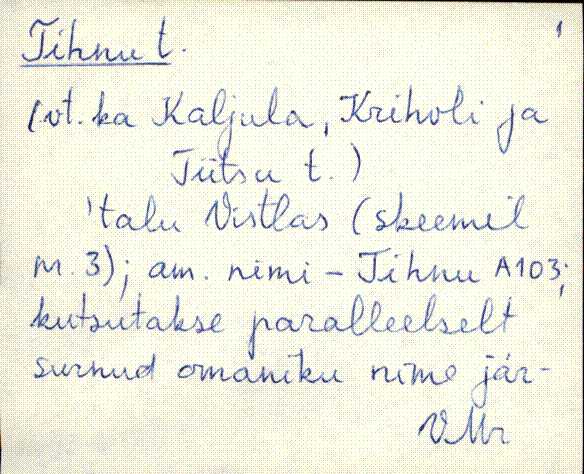 1
Tihnu t.
(vt. ka Kaljula, Kriholi ja
Tiitsu t.)
'talu Vistlas (skeemil
nr. 3); am. nimi - Tihnu A103;
kutsutakse paralleelselt
surnud omaniku nime jär-
VMr